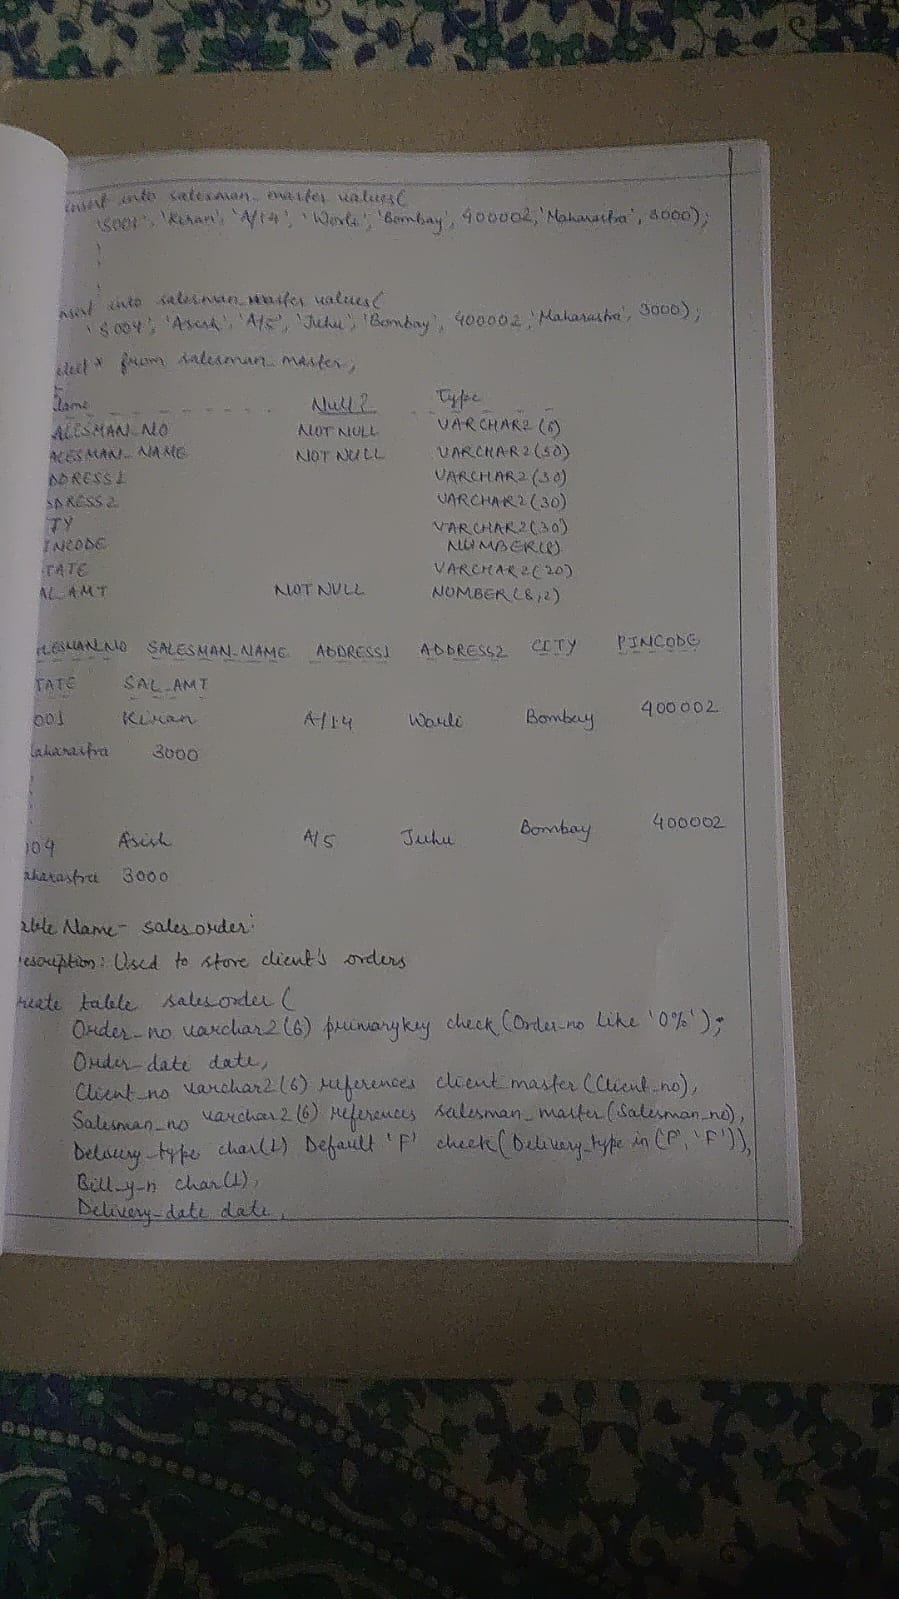 insert into salesman_master values(
'S001', 'Kiran', 'A/14', 'Worli', 'Bombay', 400002, 'Maharastra', 3000);
nsert into salesman_master values(
'S004', 'Asish', 'A/5', 'Juhu', 'Bombay', 400002, 'Maharastra', 3000);
elect * from salesman_master;
Name Null? Type
ALESMAN_NO NOT NULL VARCHAR2(6)
ALESMAN_NAME NOT NULL VARCHAR2(30)
DDRESS1 VARCHAR2(30)
DDRESS2 VARCHAR2(30)
TY VARCHAR2(30)
INCODE NUMBER(8)
TATE VARCHAR2(20)
AL_AMT NOT NULL NUMBER(8,2)
LESMAN_NO SALESMAN_NAME ADDRESS1 ADDRESS2 CITY PINCODE
TATE SAL_AMT
001 Kiran A/14 Worli Bombay 400002
aharastra 3000
004 Asish A/5 Juhu Bombay 400002
aharastra 3000
able Name- sales order:
escription: Used to store client's orders
reate table salesorder (
Order_no varchar2(6) primarykey check(Order_no like '0%');
Order_date date,
Client_no varchar2(6) references client_master(Client_no),
Salesman_no varchar2(6) references salesman_master(Salesman_no),
Delivery_type char(1) Default 'F' check(Delivery_type in ('P', 'F')),
Bill_y_n char(1),
Delivery_date date,